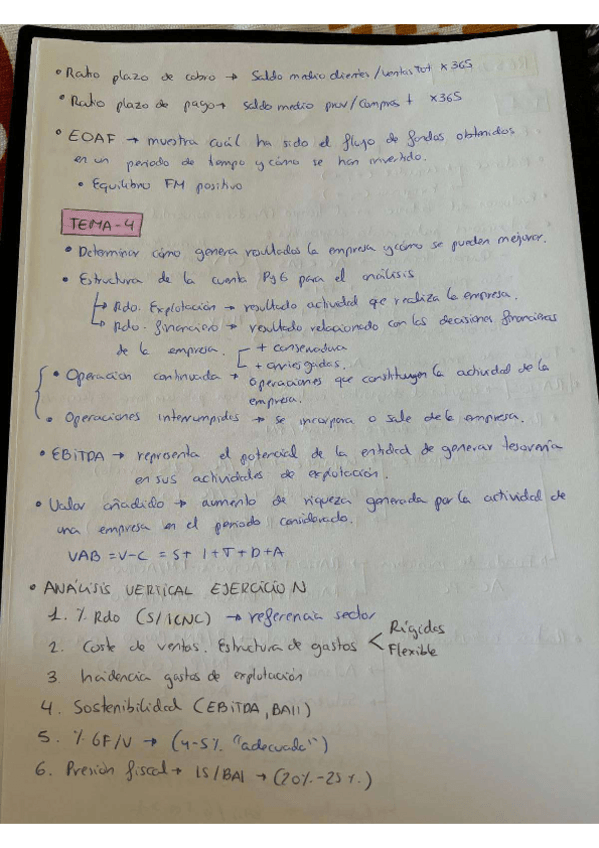 • Ratio plazo de cobro → Saldo medio clientes/ventas Tot x 365
• Ratio plazo de pago → saldo medio prov/compras t x365
• EOAF → muestra cuál ha sido el flujo de fondos obtenidos
en un periodo de tiempo y cómo se han invertido.
• Equilibrio FM positivo
TEMA-4
• Determinar cómo genera resultados la empresa y cómo se pueden mejorar.
• Estructura de la cuenta PyG para el análisis
↳ Rdo. Explotación → resultado actividad que realiza la empresa.
↳ Rdo. financiero → resultado relacionado con las decisiones financieras
de la empresa. + conservadora
+ arriesgadas.
• Operación continuada → operaciones que constituyen la actividad de la
empresa.
• Operaciones interrumpidas → se incorpora o sale de la empresa.
• EBITDA → representa el potencial de la entidad de generar tesorería
en sus actividades de explotación.
• Valor añadido → aumento de riqueza generada por la actividad de
una empresa en el periodo considerado.
VAB = V-C = S+ I+T+D+A
• ANÁLISIS VERTICAL EJERCICIO N
1. % Rdo (S/ICNC) → referencia sector
2. Coste de ventas. Estructura de gastos < Rígidas
Flexible
3. Incidencia gastos de explotación
4. Sostenibilidad (EBITDA, BAII)
5. % GF/V → (4-5% "adecuado")
6. Presión fiscal → IS/BAI → (20%-25%.)